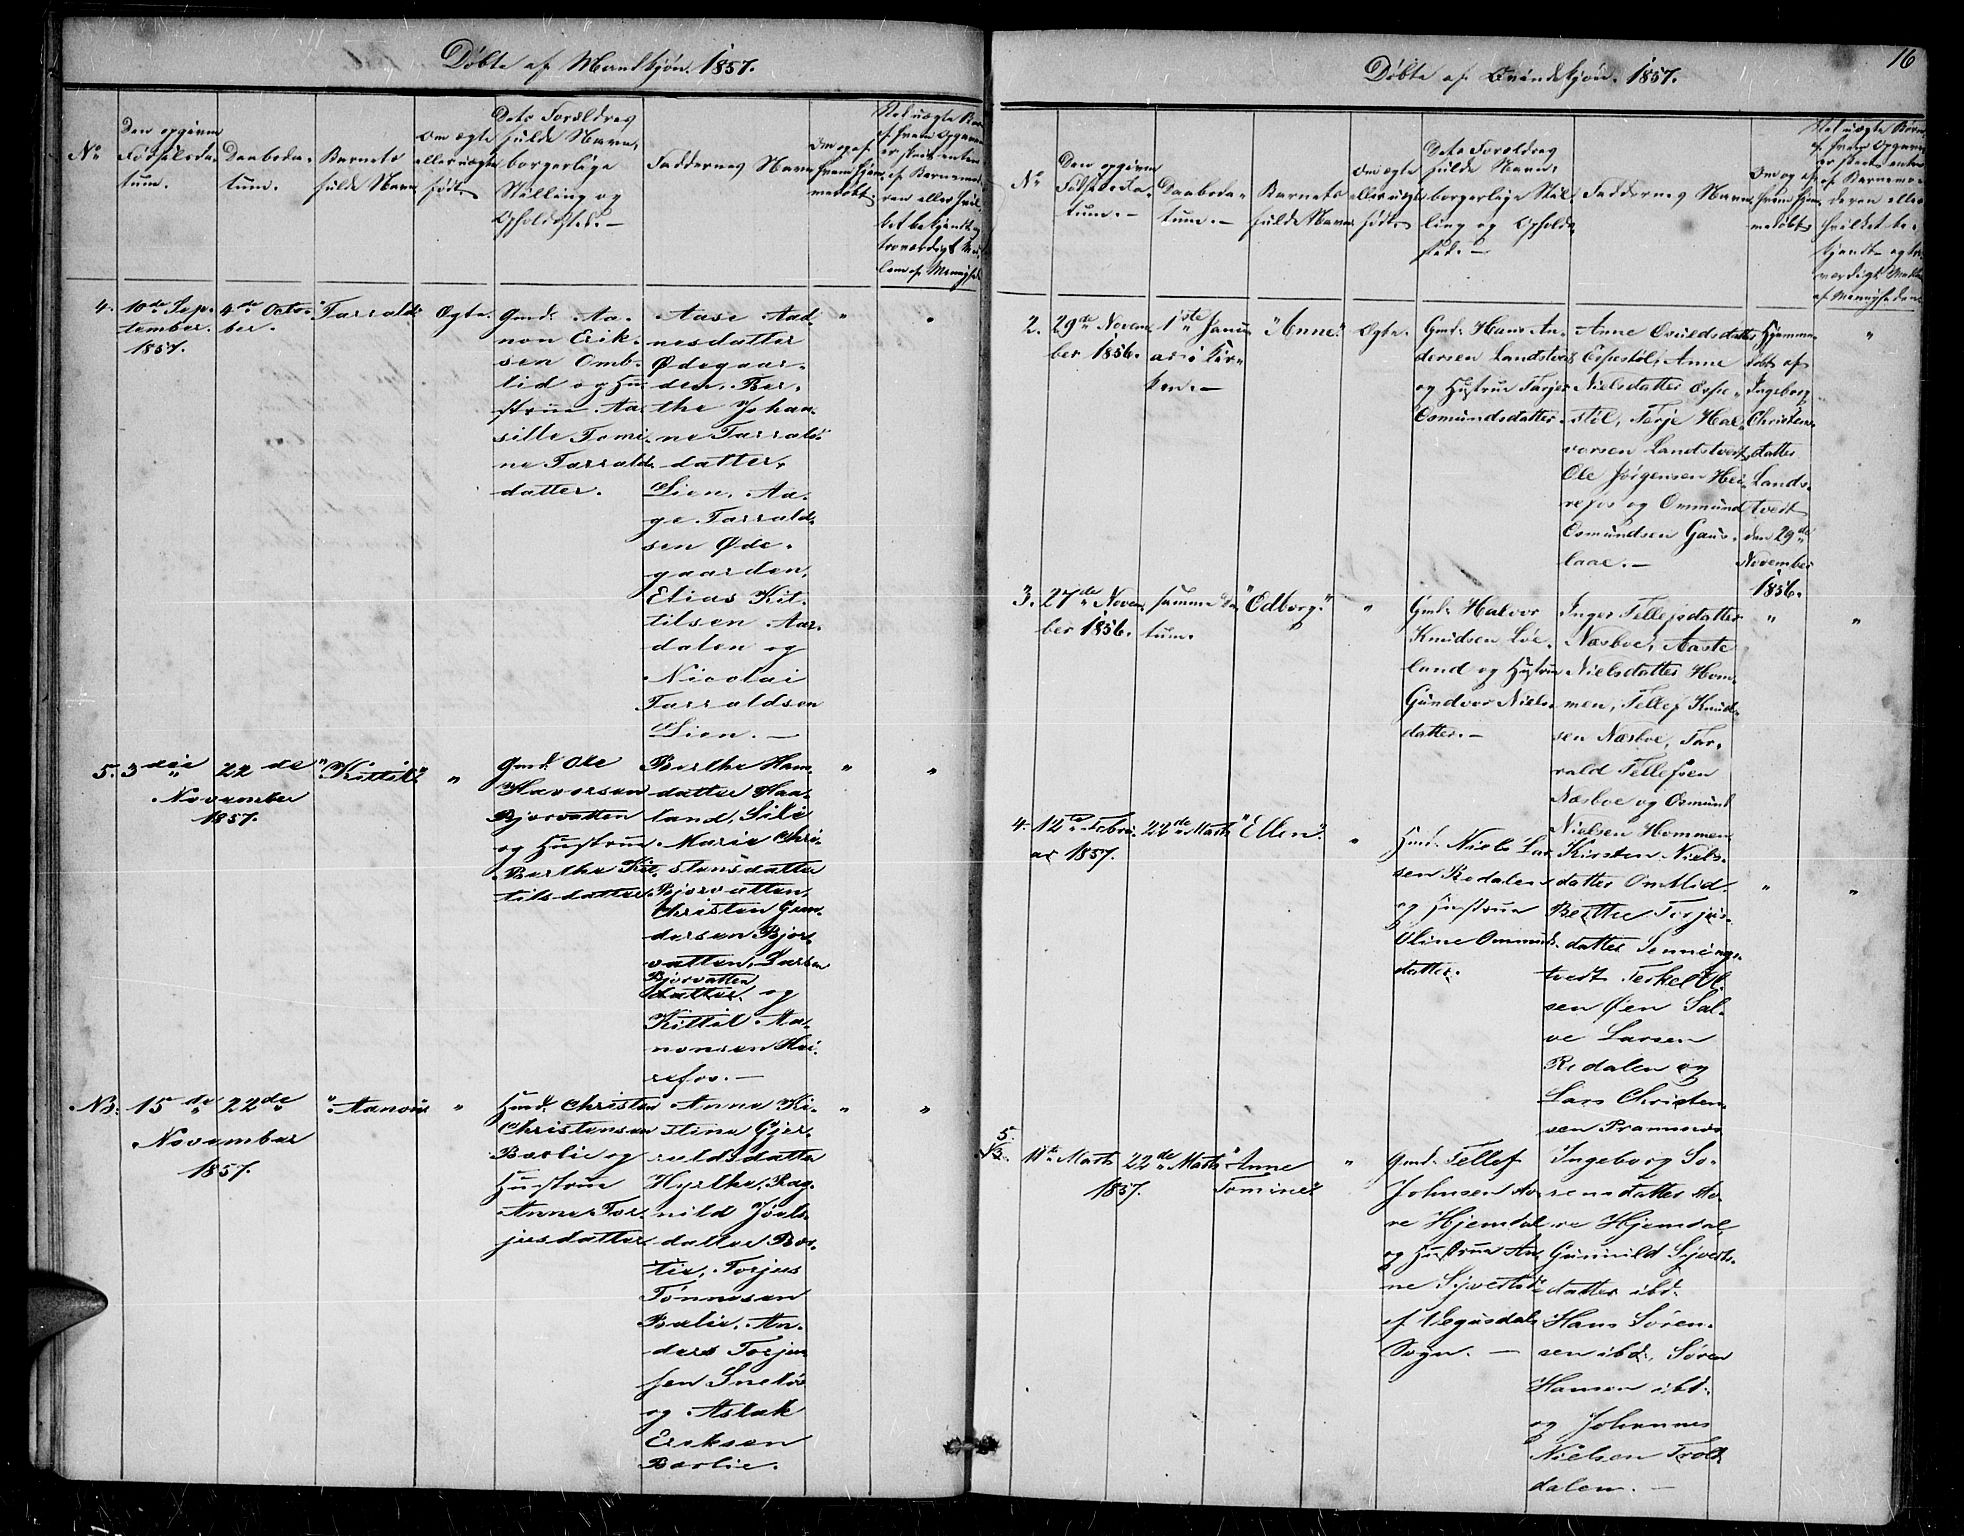 Døbte af Mandkjøn. 1857.
No
Den opgivne
Fødselsda-
tum.
Daabsda-
tum.
Barnets
fulde Navn
Om ægte
eller uægte
født.
Dets Forældres
fulde Navn,
borgerlige
Stilling og
Opholdsted. —
Faddernes Navn
4.
10de Sep-
tember.
1857.
4de Octo-
ber.
Tarrald
Ægte.
Gmd. Aa-
non Erik-
sen Omb-
lid og Hu-
strue Aa-
sille Tomi-
ne Tarralds
datter.
Aase Aad-
nesdatter
Ødegaar-
den, Ber-
the Johan-
ne Tarralds
datter,
Lien, Aa-
ge Tarrald-
sen Øde-
gaarden,
Elias Kit-
tilsen Aar-
dalen og
Nicolai
Tarraldsen
Lien. —
"
"
5.
3die
November
1857.
22de
"Kittil"
"
Gmd. Ole
Havorsen
Bjorvatten
og Hustrue
Berthe Kit-
tilsdatter.
Berthe Hans-
datter Haa-
land, Silie
Marie Chri-
stensdatter
Bjorvatten,
Christen Gun-
dersen Bjor-
vatten, Larsen
Bjorvatten
datter. og
Kittil Aa-
nonsen Hei-
refos. —
"
"
NB.
15de
November
1857.
22de
"Aanon
"
Hmd. Christen
Christensen
Bœrlie og
Hustrue
Anne Tor-
jusdatter
Anne Ki-
stine Gjer-
uldsdatter
Hyrthe, Rag-
nild Joels-
datter Bœr-
lie, Torjus
Tønnesen
Bœlie, An-
ders Torju-
sen Sneløs
og Aslak
Eriksen
Bœrlie.
"
"
16
Døbte af Qvindekjøn. 1857.
No
Den opgivne
Fødselsda-
tum. —
Daabsda-
tum. —
Barnets
fulde Navn
Om ægte
eller uægte
født.
Dets Forældres
fulde Navn,
borgerlige Stil-
ling og Ophold-
sted. —
Faddernes Navn
2.
29de Novem-
ber 1856.
1ste Janu-
ar i Kir-
ken. —
"Anne"
Ægte.
Gmd. Hans An-
dersen Landstvedt
og Hustrue Tarjer
Osmundsdatter
Anne Osuldsdatter
Espestøl, Anne
Nielsdatter Espe-
støl, Terje Hal-
vorsen Landstvedt,
Ole Jørgensen Hei-
refos og Ommund
Osmundsen Gaus-
laae. —
Hjemme-
døbt af
Ingeborg
Christens-
datter
Lands-
tvedt
den 29de
November
1856.
"
3.
27de Novem-
ber 1856.
samme Da-
tum.
"Odborg"
"
Gmd. Halvor
Knudsen Løe-
land og Hustrue
Gundvor Niels-
datter. —
Inger Tellefsdatter
Næsboe, Aaste
Nielsdatter Hom-
men, Tellef Knud-
sen Næsboe, Tar-
rald Tellefsen
Næsboe og Osmund
Nielsen Hommen
"
"
4.
12te Febru-
ar 1857.
22de Marts
"Ellen"
"
Hmd. Niels Lar-
sen Redalen
og Hustrue
Oline Ommunds-
datter.
Kirsten Niels-
datter Omblid,
Berthe Torjus-
datter Senning-
tvedt Terkel Ol-
sen Øen Sal-
ve Larsen
Redalen og
Lars Christen-
sen Pramnæs
"
"
5.
NB.
11te Marts
1857.
22de Marts
"Anne
Tomine"
"
Gmd. Tellef
Johnsen Aa-
re Hjemdal
og Hustrue An-
ne Syvertsd.
af Vegusdals
Sogn. —
Ingeborg So-
rensdatter Aa-
re Hjemdal,
Gunnild Syverts-
datter ibd.
Hans Søren-
sen ibd. Søren
Hansen ibd.
og Johannes
Nielsen Trold-
dalen. —